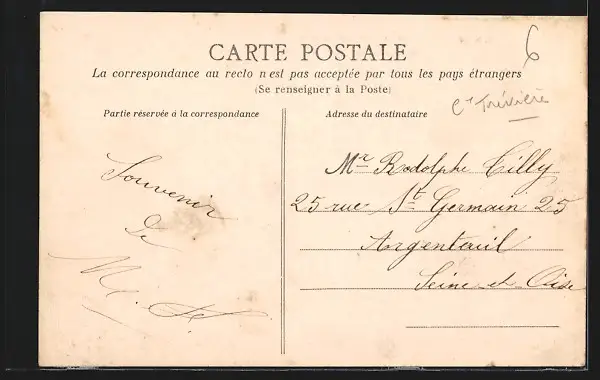 CARTE POSTALE
La correspondance au recto n'est pas acceptée par tous les pays étrangers
(Se renseigner à la Poste)
6
Partie réservée à la correspondance
Souvenir
de
Adresse du destinataire
Mr Rodolphe Tilly
25 rue St Germain 25
Argenteuil
Seine-et-Oise